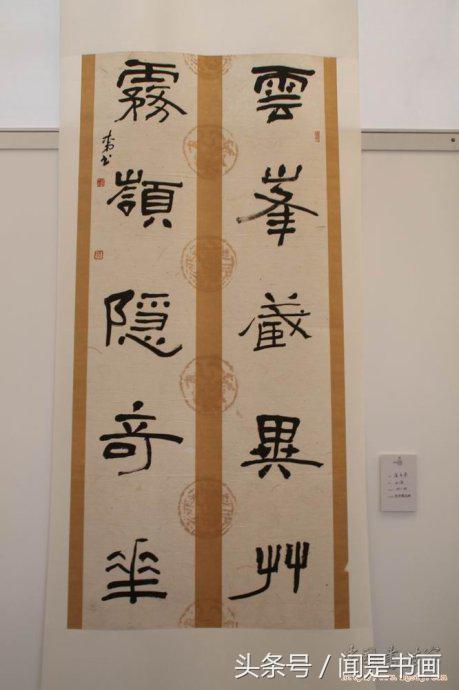 雲峯藏異艸
霧嶺隐奇華
头条号 / 闻是书画